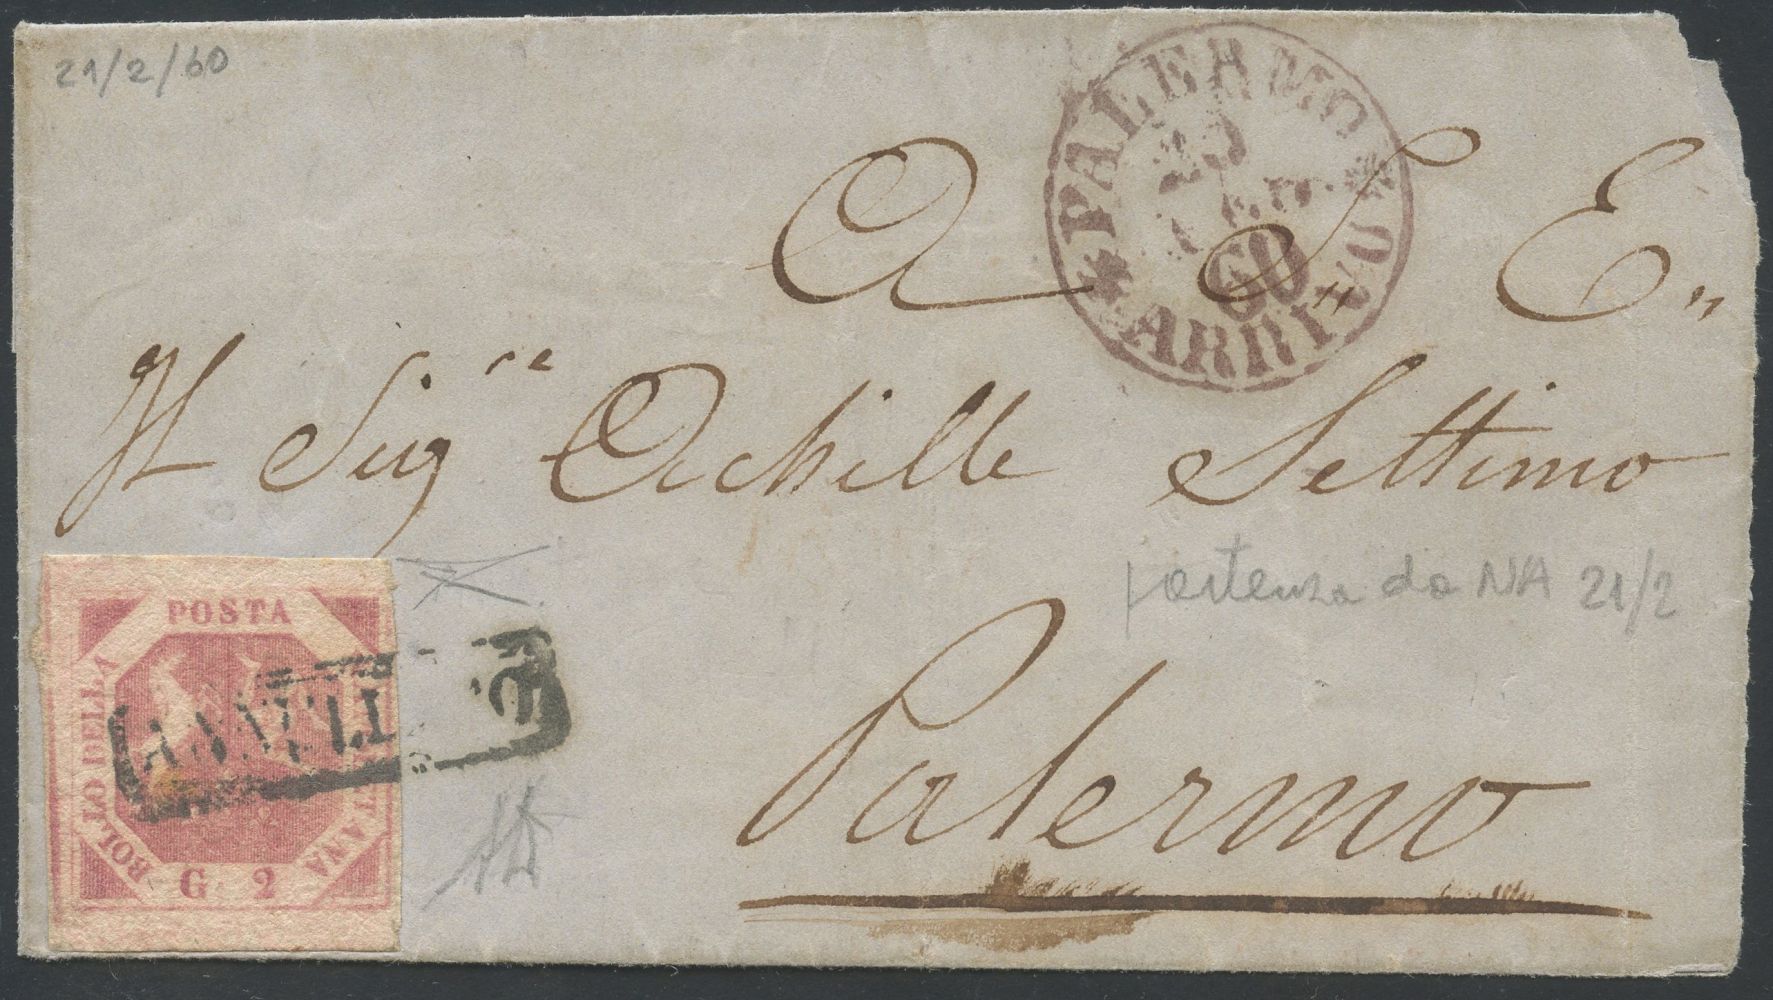 21/2/60
PALERMO
60
ARRIVO
A S. E.
Il Sigre Achille Settimo
partenza da NA 21/2
Palermo
POSTA
BOLLO DELLA
G 2
ANNULLATO